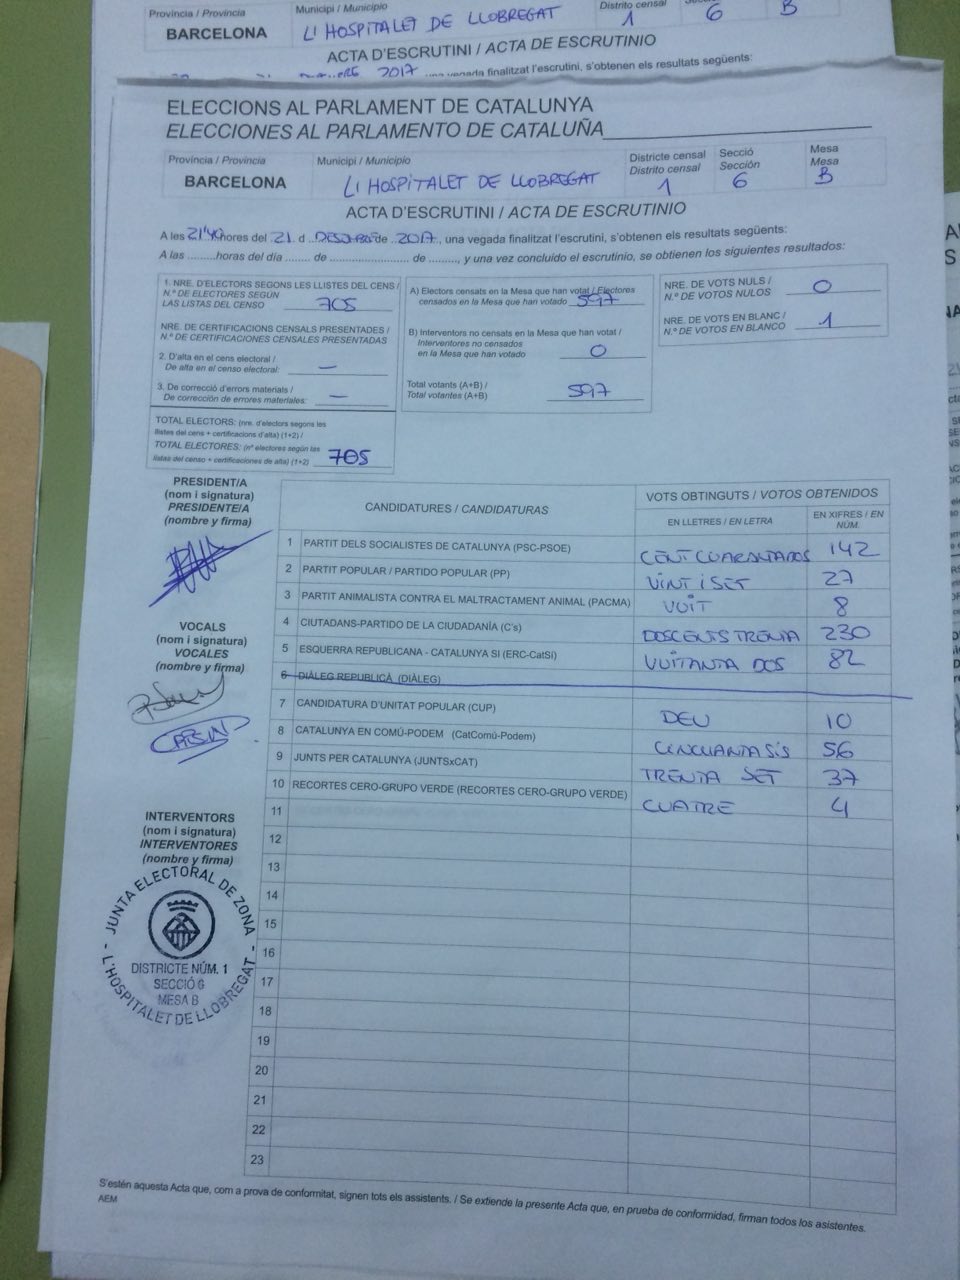 Província / Provincia
BARCELONA
Municipi / Municipio
L' HOSPITALET DE LLOBREGAT
Distrito censal
1
6
B
ACTA D'ESCRUTINI / ACTA DE ESCRUTINIO
2017 una vegada finalitzat l'escrutini, s'obtenen els resultats següents:
ELECCIONS AL PARLAMENT DE CATALUNYA
ELECCIONES AL PARLAMENTO DE CATALUÑA
Província / Provincia
BARCELONA
Municipi / Municipio
L' HOSPITALET DE LLOBREGAT
Districte censal
Distrito censal
1
Secció
Sección
6
Mesa
Mesa
B
ACTA D'ESCRUTINI / ACTA DE ESCRUTINIO
A les 21'40 hores del 21 d DESEMBRE de 2017, una vegada finalitzat l'escrutini, s'obtenen els resultats següents:
A las .........horas del día ....... de ............................ de ........., y una vez concluido el escrutinio, se obtienen los siguientes resultados:
1. NRE. D'ELECTORS SEGONS LES LLISTES DEL CENS /
N.º DE ELECTORES SEGÚN
LAS LISTAS DEL CENSO 705
NRE. DE CERTIFICACIONS CENSALS PRESENTADES /
N.º DE CERTIFICACIONES CENSALES PRESENTADAS
2. D'alta en el cens electoral /
De alta en el censo electoral: —
3. De correcció d'errors materials /
De corrección de errores materiales: —
TOTAL ELECTORS: (nre. d'electors segons les
llistes del cens + certificacions d'alta) (1+2) /
TOTAL ELECTORES: (nº electores según las
listas del censo + certificaciones de alta) (1+2) 705
A) Electors censats en la Mesa que han votat / Electores
censados en la Mesa que han votado 597
B) Interventors no censats en la Mesa que han votat /
Interventores no censados
en la Mesa que han votado 0
Total votants (A+B) /
Total votantes (A+B) 597
NRE. DE VOTS NULS /
N.º DE VOTOS NULOS 0
NRE. DE VOTS EN BLANC /
N.º DE VOTOS EN BLANCO 1
PRESIDENT/A
(nom i signatura)
PRESIDENTE/A
(nombre y firma)
VOCALS
(nom i signatura)
VOCALES
(nombre y firma)
INTERVENTORS
(nom i signatura)
INTERVENTORES
(nombre y firma)
JUNTA ELECTORAL DE ZONA
- L'HOSPITALET DE LLOBREGAT -
DISTRICTE NÚM. 1
SECCIÓ 6
MESA B
CANDIDATURES / CANDIDATURAS
VOTS OBTINGUTS / VOTOS OBTENIDOS
EN LLETRES / EN LETRA
EN XIFRES / EN NÚM.
1 PARTIT DELS SOCIALISTES DE CATALUNYA (PSC-PSOE) CENT CUARANTA DOS 142
2 PARTIT POPULAR / PARTIDO POPULAR (PP) VINT I SET 27
3 PARTIT ANIMALISTA CONTRA EL MALTRACTAMENT ANIMAL (PACMA) VUIT 8
4 CIUTADANS-PARTIDO DE LA CIUDADANÍA (C's) DOSCENTS TRENTA 230
5 ESQUERRA REPUBLICANA - CATALUNYA SI (ERC-CatSí) VUITANTA DOS 82
6 DIÀLEG REPUBLICÀ (DIÀLEG)
7 CANDIDATURA D'UNITAT POPULAR (CUP) DEU 10
8 CATALUNYA EN COMÚ-PODEM (CatComú-Podem) CINCUANTA SIS 56
9 JUNTS PER CATALUNYA (JUNTSxCAT) TRENTA SET 37
10 RECORTES CERO-GRUPO VERDE (RECORTES CERO-GRUPO VERDE) CUATRE 4
11
12
13
14
15
16
17
18
19
20
21
22
23
S'estén aquesta Acta que, com a prova de conformitat, signen tots els assistents. / Se extiende la presente Acta que, en prueba de conformidad, firman todos los asistentes.
AEM